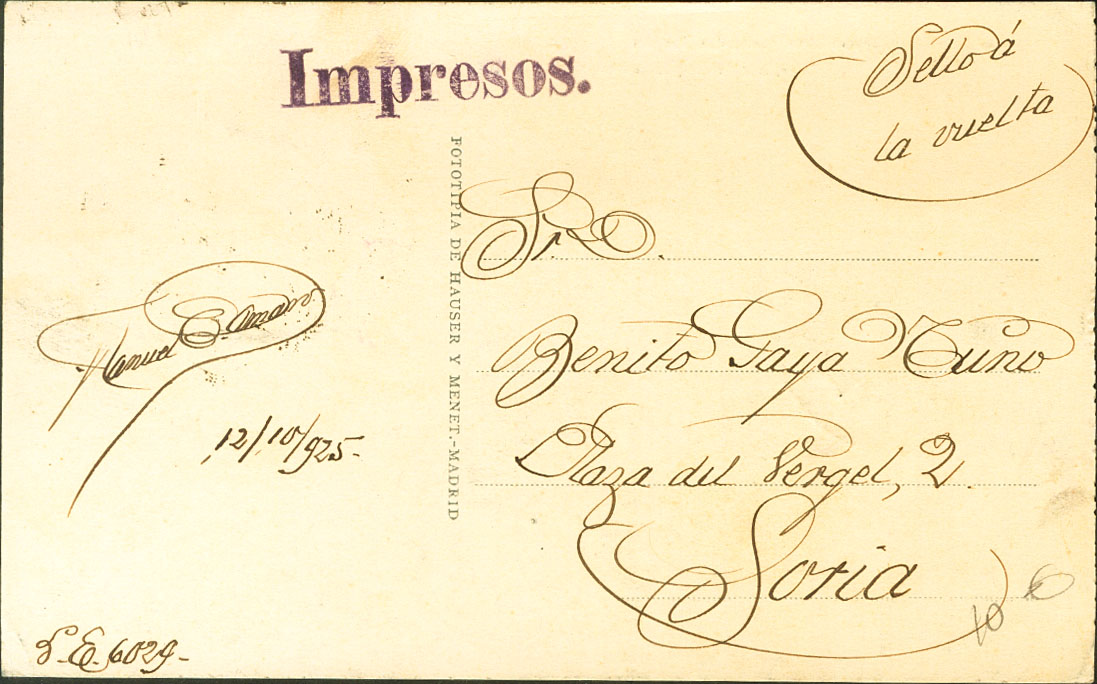 Impresos.
Sello á
la vuelta
FOTOTIPIA DE HAUSER Y MENET.-MADRID
Sr. D.
Benito Gaya Tuno
Plaza del Vergel, 2.
Soria
Manuel E. Amaro
12/10/925-
S.E. 6029-
10